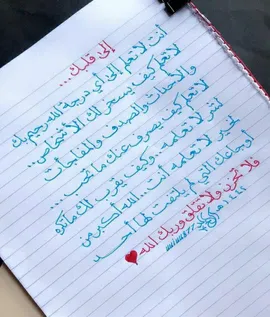 إلى قلبك...
أنت لا تعلم إلى أي درجة الله رحيم بك
لا تعلم كيف يسخر لك الأشخاص..
والأحداث والصدف والمفاجآت
لا تعلم كيف يصرف عنك ما تحب..
لشر لا تعلمه.. وكيف يقرب لك ما تكره
لخير لا تعلمه أنت.. الله أكبر من
أوجاعك التي لم يلتفت لها أحد
فلا تحزن ولا تقلق وربك الله